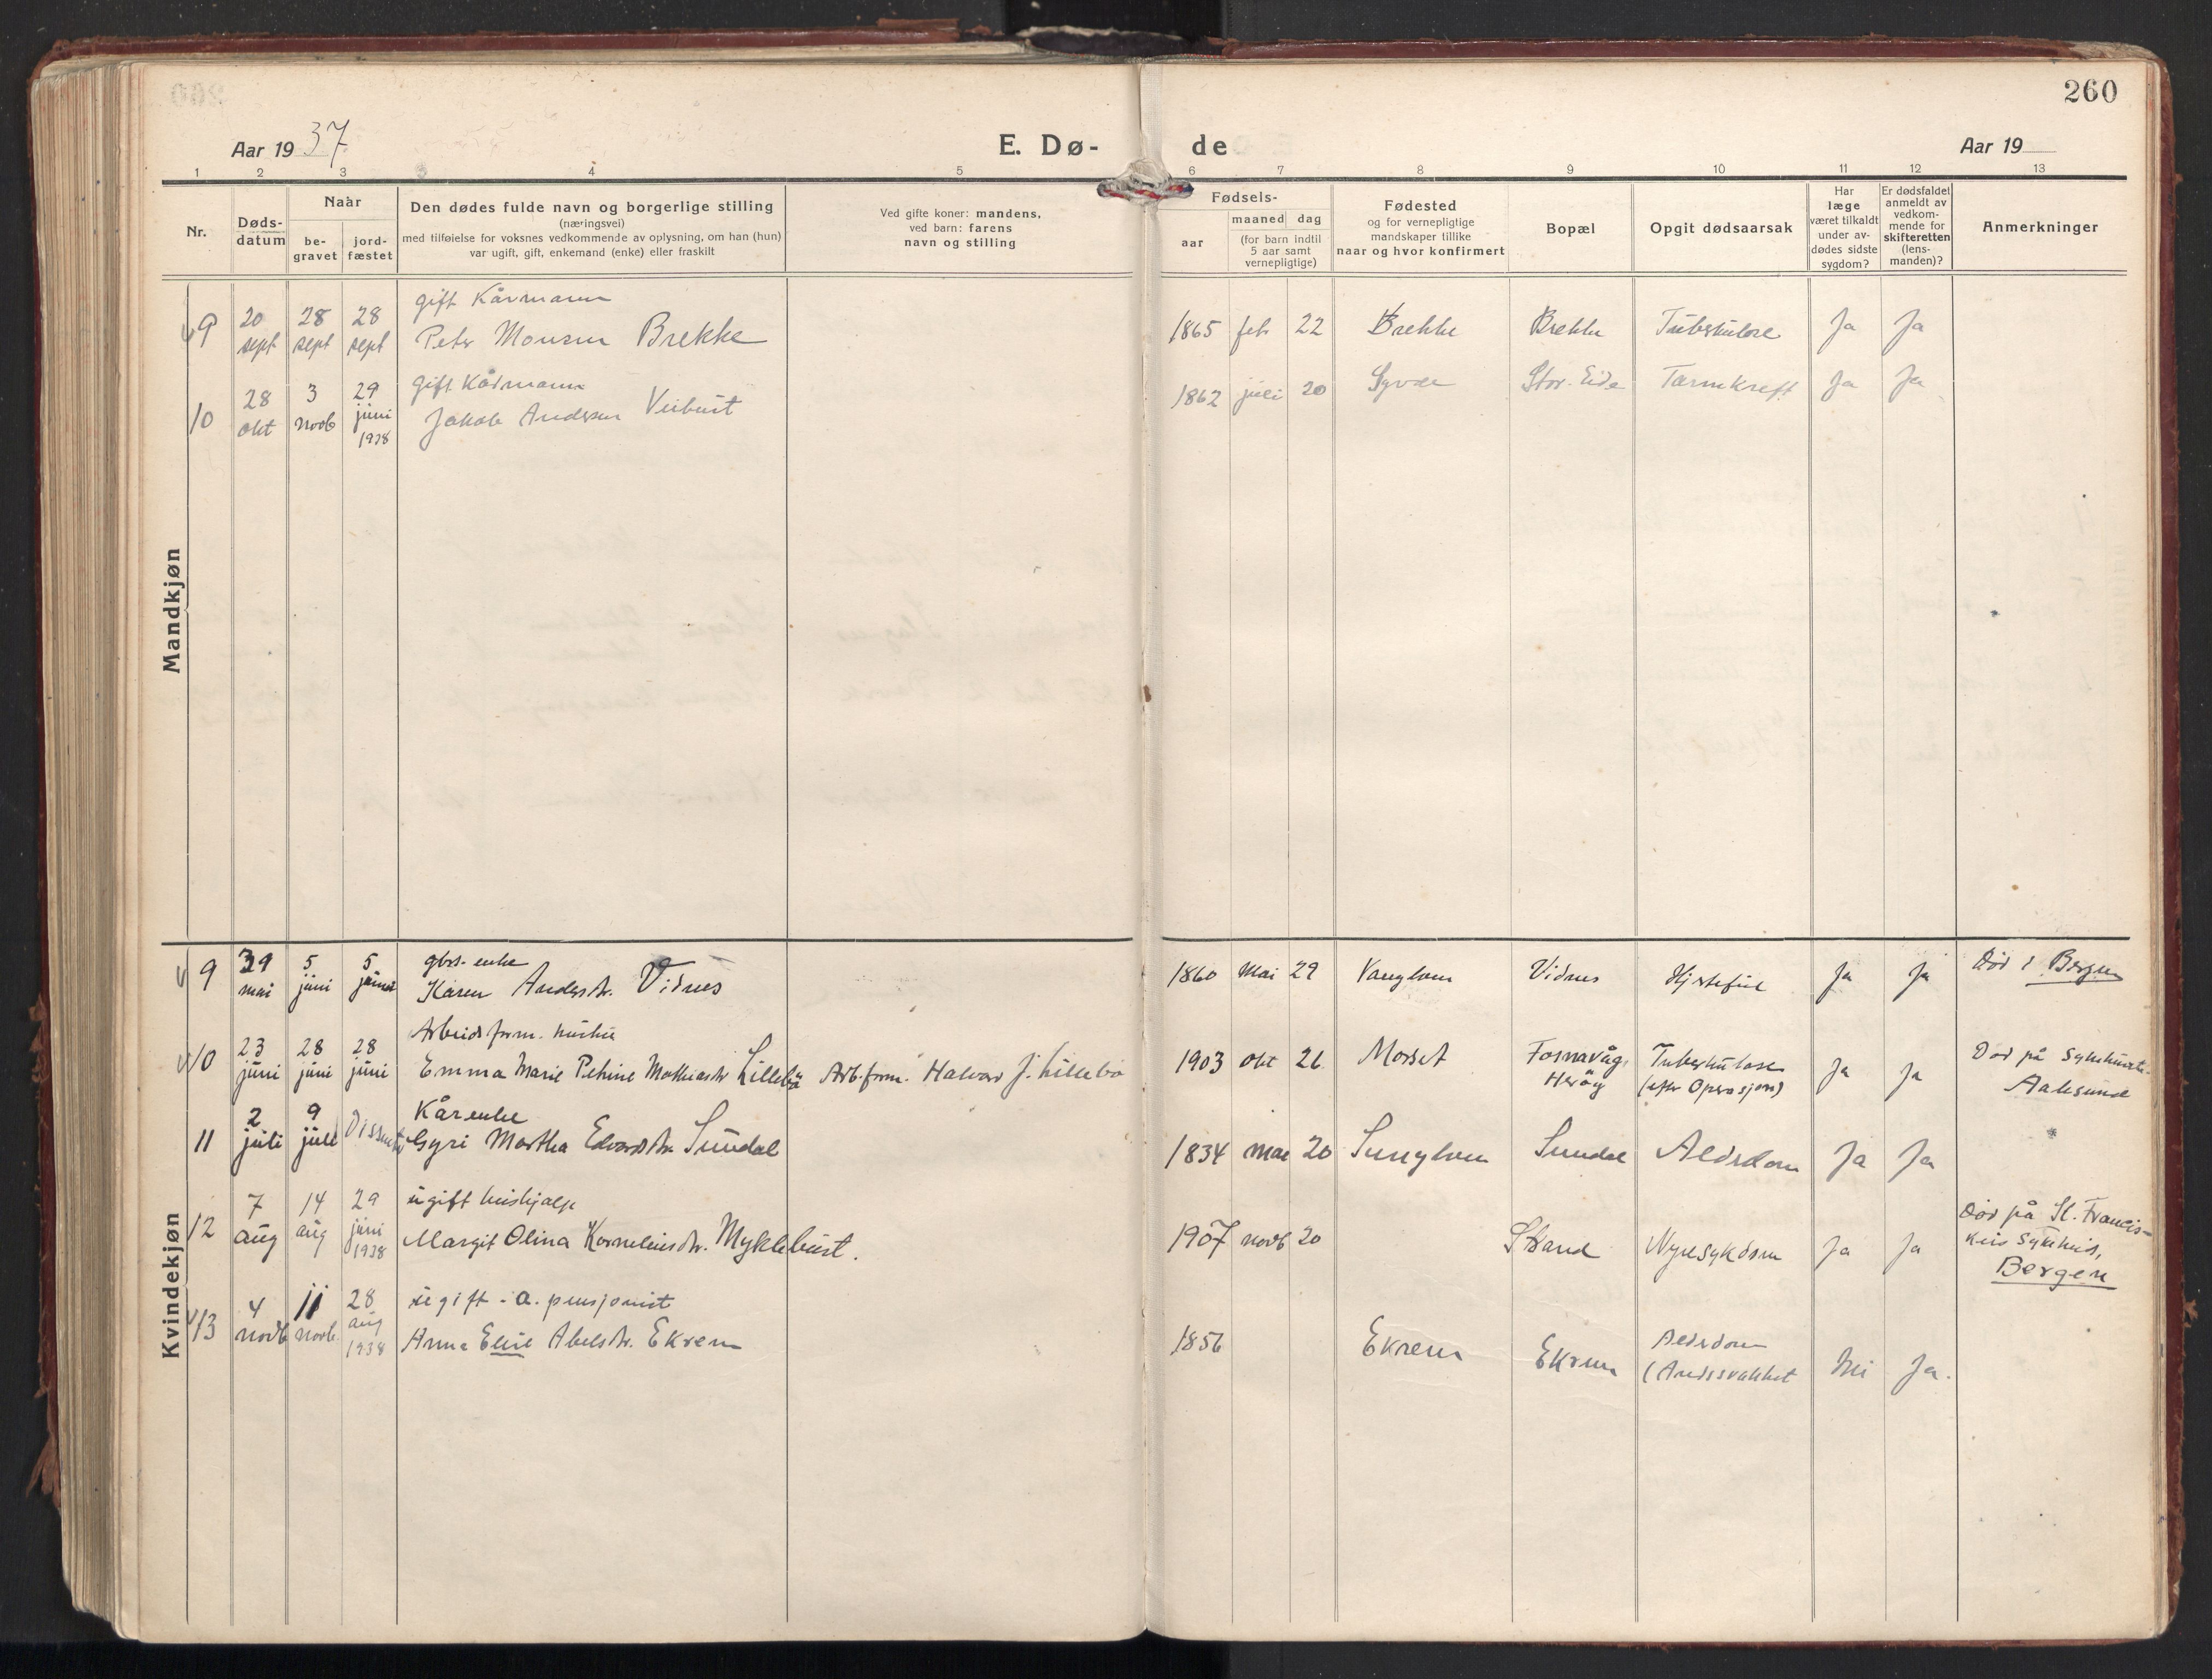 260
Aar 19 37
E. Dø-
de
Aar 19
1 2 3 4 5 6 7 8 9 10 11 12 13
Nr.
Døds-
datum
Naar
be-
gravet
jord-
fæstet
Den dødes fulde navn og borgerlige stilling
(næringsvei)
med tilføielse for voksnes vedkommende av oplysning, om han (hun)
var ugift, gift, enkemand (enke) eller fraskilt
Ved gifte koner: mandens,
ved barn: farens
navn og stilling
Fødsels-
aar
maaned dag
(for barn indtil
5 aar samt
vernepligtige)
Fødested
og for vernepligtige
mandskaper tillike
naar og hvor konfirmert
Bopæl
Opgit dødsaarsak
Har
læge
været tilkaldt
under av-
dødes sidste
sygdom?
Er dødsfaldet
anmeldt av
vedkom-
mende for
skifteretten
(lens-
manden)?
Anmerkninger
Mandkjøn
gift Kårmann
9 20 sept 28 sept 28 sept Peter Monsen Brekke 1865 feb 22 Brekke Brekke Tuberkulose Ja Ja
gift Kårmann
10 28 okt 3 novb 29 juni 1938 Jakob Andersen Veibust 1862 juli 20 Syvde Stor-Eide Tarmkreft Ja Ja
Kvindekjøn
gbr.- enke
9 mai 5 juni 5 juni Karen Andersdtr. Vidnes 1860 mai 29 Vanylven Vidnes Hjertefeil Ja Ja Död i Bergen
Arbeidsform. hustru
10 23 juni 28 juni 28 juni Emma Marie Petrine Mathiasdtr Lillebö Arb.form. Halvar J. Lillebö 1903 okt 26 Morset Fosnavåg, Heröy Tuberkulose (efter Operasjon) Ja Ja Död på Sykehuset Aalesund
Kårenke
11 2 juli 9 juli Dissenter Gyri Martha Edvardsdtr. Sundal 1834 mai 20 Sunylven Sundal Alderdom Ja Ja
ugift hushjælp
12 7 aug 14 aug 29 juni 1938 Margit Olina Korneliusdtr. Myklebust. 1907 novb 20 Strand Nyresykdom Ja Ja Död på St. Francis-
kus Sykehus,
Bergen
ugift - a. pensjonist
13 4 novb 11 novb. 28 aug 1938 Anna Elise Abelsdtr. Ekrem 1856 Ekrem Ekrem Alderdom
(Åndssvakhet Nei Ja.